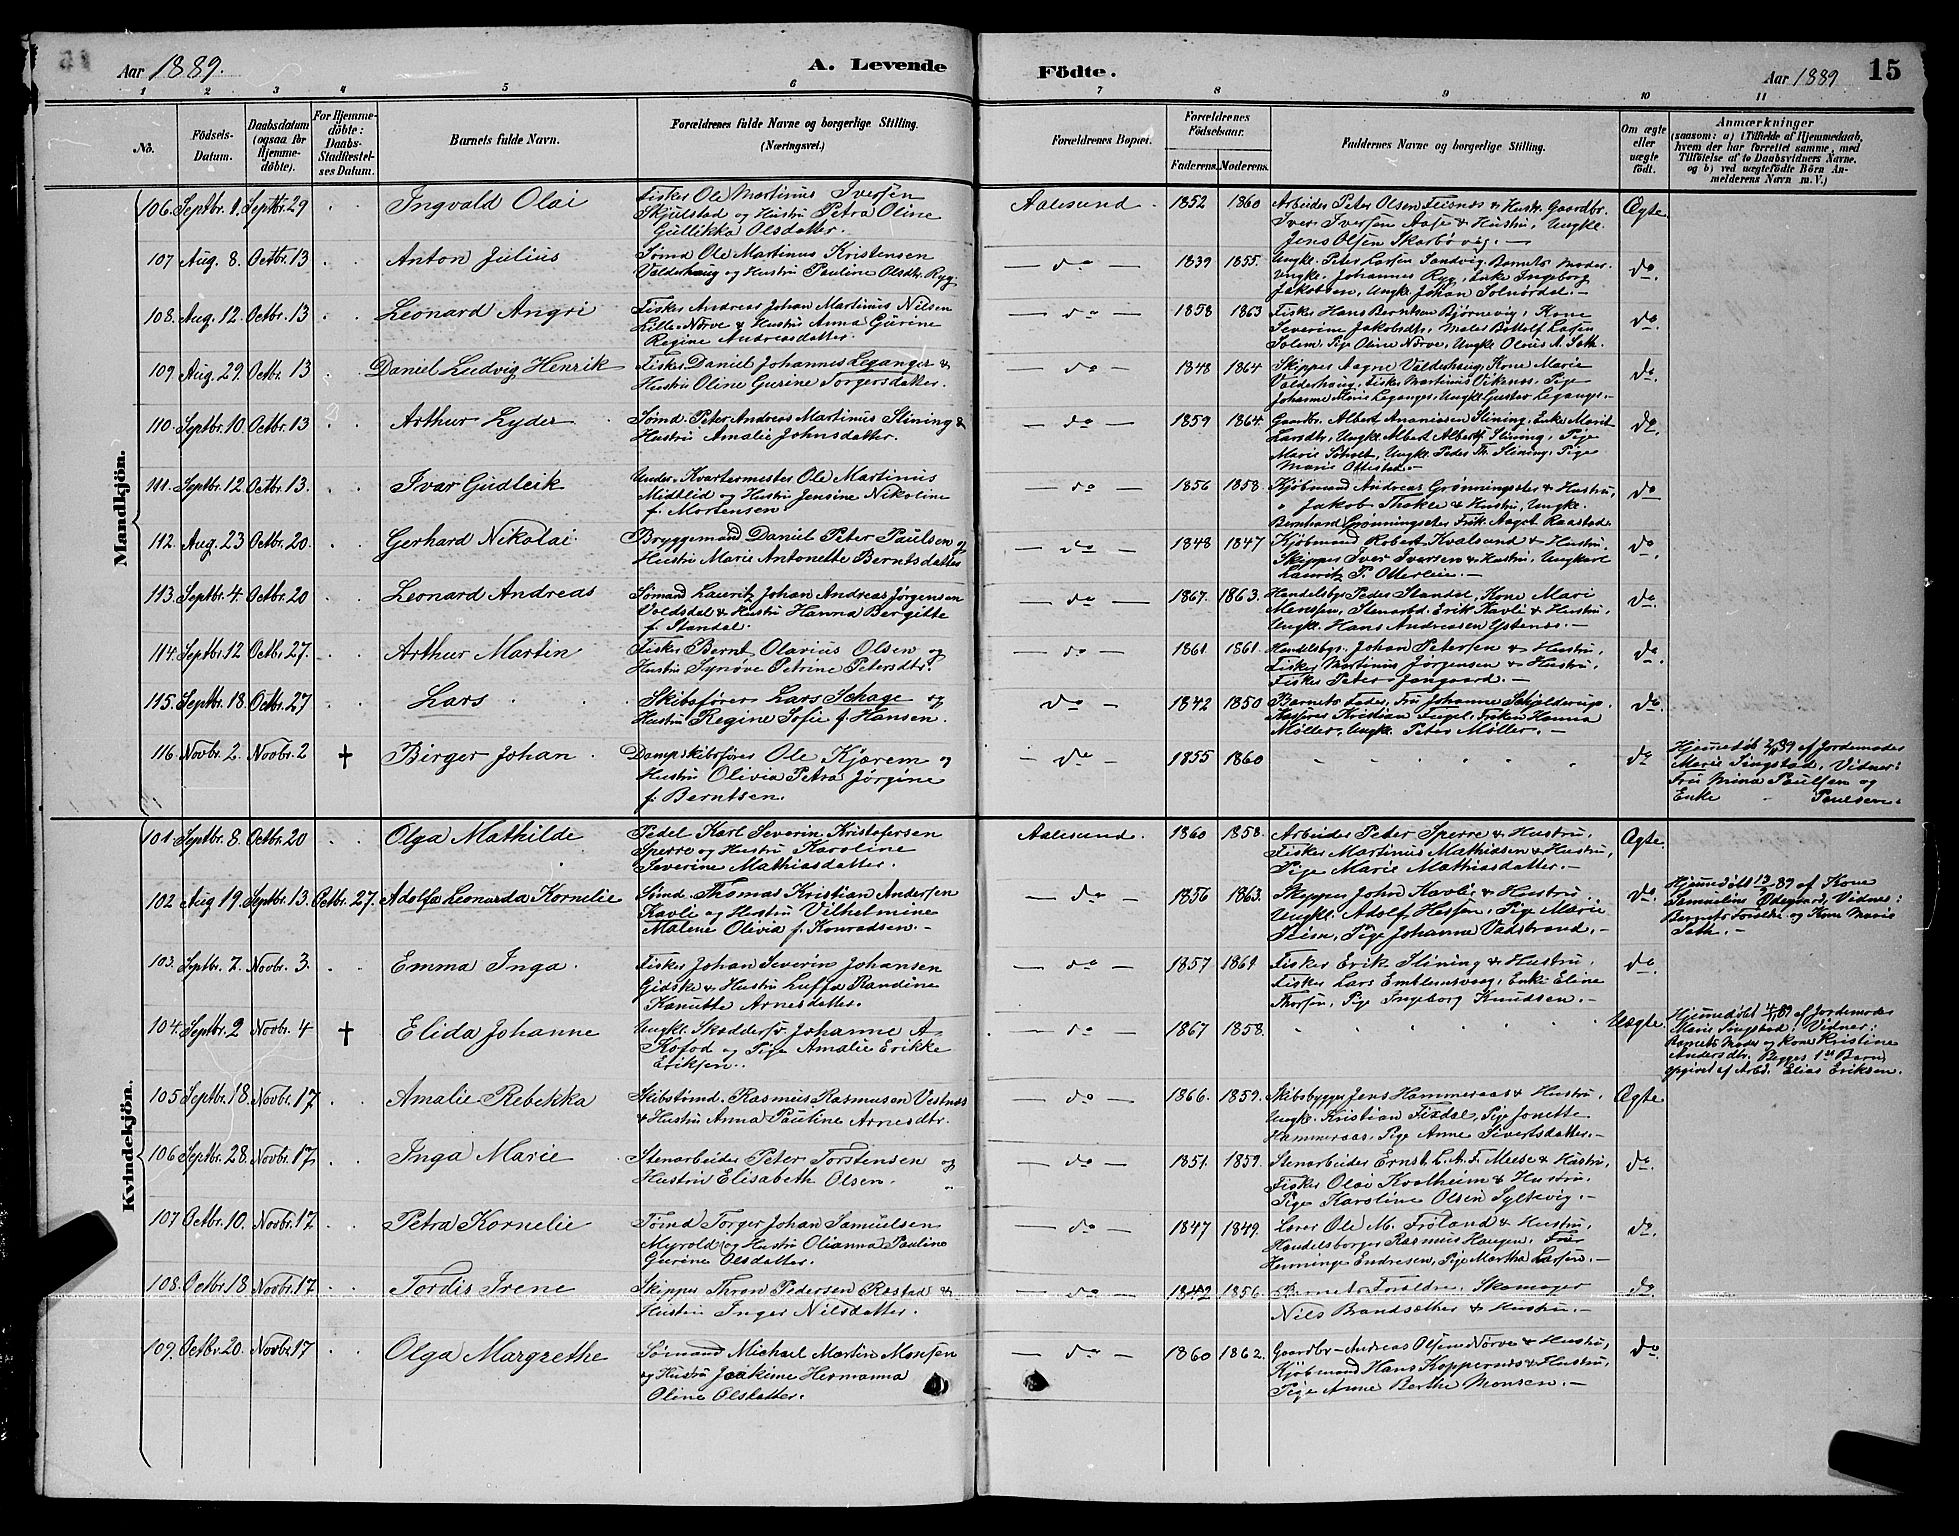 Aar 1889.
A. Levende
Födte.
Aar 1889
15
1 2 3 4 5 6 7 8 9 10 11
No.
Födsels-Datum.
Daabsdatum (ogsaa for Hjemme-döbte).
For Hjemme-döbte: Daabs-Stadfæstel-ses Datum.
Barnets fulde Navn.
Forældrenes fulde Navne og borgerlige Stilling. (Næringsvei.)
Forældrenes Bopæl.
Forældrenes Födselsaar.
Faderens. Moderens.
Faddernes Navne og borgerlige Stilling.
Om ægte eller uægte födt.
Anmærkninger
(saasom: a) i Tilfælde af Hjemmedaab, hvem der har forrettet samme, med Tilföielse af to Daabsvidners Navne. og b) ved uægtefödte Börn Anmelderens Navn m. V.)
Mandkjön.
106. Septbr. 1. Septbr. 29 Ingvald Olai Fisker Ole Martinus Iversen Aalesund. 1852 1860 Arbeider Peter Olsen & Hustr. Gaardbr. Ægte
Skjulstad og Hustru Petra Oline Iver Iversen Aase & Hustru, Ungkl.
Gullikka Olsdatter. Jens Olsen Skarbøvig.
107 Aug. 8. Octbr. 13 Anton Julius Sømd Ole Martinus Kristensen do 1839 1855. Ungkl. Peter Larsen Sandvig, Barnets Moder. do
Valderhaug og Hustru Pauline Olsdtr. Ryg Ungkl. Johannes Ryg, Enke Ingeborg
Jakobsen, Ungkl. Johan Solnørdal.
108. Aug. 12. Octbr. 13 Leonard Angri Fisker Andreas Johan Martinus Nilsen do 1858 1863 Fisker Hans Berntsen Bjørnevig, Kone do.
Lille-Nørve & Hustru Anna Gurine Severine Jakobsdtr, Maler Bottolf Larsen
Regine Andreasdatter. Solem, Pige Oline Nørve, Ungkl. Oleus A. Sæth.
109 Aug. 29. Octbr. 13 Daniel Ludvig Henrik Fisker Daniel Johannes Leganger & do 1848 1864 Skipper Aagne Valderhaug, Kone Marie do.
Hustru Oline Gurine Torgersdatter. Valderhaug, Fisker Martinus Viknes, Pige
Johanne Marie Leganger, Ungkl. Gustav Leganger.
110. Septbr. 10. Octbr. 13 Arthur Lyder Sømd. Peter Andreas Martinus Slining & do 1859 1864. Gaardbr. Albert Ananiasen Slining, Enke Marit do.
Hustru Amalie Johnsdatter. Larsdtr, Ungkl. Albert Alberts. Slining, Pige
Marie Søholt, Ungkl. Peder Th. Slining, Pige
Marie Ottestad.
111. Septbr. 12. Octbr. 13. Ivar Gudleik Under. Kvartermester Ole Martinus do 1856 1858. Kjøbmand Andreas Grønningseter & Hustru, do
Midtlid og Hustru Jensine Nikoline " Jakob Thokle & Hustru, Ungkl.
f. Mortensen. Bernhard Grønningseter, Frk. Aagot Raastad
112. Aug. 23 Octbr. 20. Gerhard Nikolai Bryggemand Daniel Peter Paulsen og do 1848 1847 Kjøbmand Robert Kvalsund & Hustru. do.
Hustru Marie Antonette Berntsdatter Skipper Iver Iversen & Hustru, Ungkarl
Lauritz P. Otterlei.
113. Septbr. 4. Octbr. 20 Leonard Andreas Sømand Lauritz Johan Andreas Jørgensen do 1867. 1863. Handelsbgr. Peder Standal, Kone Mari do.
Voldsdal & Hustru Hanna Bergitte Monssen, Stenarbd. Erik Kavli & Hustru,
f. Standal. Ungkl. Hans Andreasen Ystenes.
114. Septbr. 12 Octbr. 27. Arthur Martin Fisker Bernt Olavius Olsen og do 1861 1861. Handelsbgr. Johan Petersen & Hustru, do.
Hustru Synøve Petrine Petersdtr. Fisker Martinus Jørgensen & Hustru,
Fisker Peter Jangaard.
115. Septbr. 18. Octbr. 27 Lars Skibsfører Lars Schage og do 1842 1850 Barnets Fader, Fru Johanne Schjelderup, do.
Hustru Regine Sofie f. Hansen. Kasserer Kristian Fugel, Frøken Hanna
Møller, Ungkl. Peter Møller.
116 Novbr. 2. Novbr. 2 † Birger Johan Dampskibsfører Ole Kjærem og do 1855 1860 do Hjemmedøbt 2/11 89 af Jordemoder
Hustru Olivia Petra Jørgine Marie Singstad. Vidner:
f. Berntsen. Fru Mina Paulsen og
Enke " Paulsen.
Kvindekjön.
101. Septbr. 8. Octbr. 20 Olga Mathilde Pedel Karl Severin Kristofersen Aalesund. 1860 1858. Arbeider Peter Sperre & Hustru, Ægte.
Sperre og Hustru Karoline Fisker Martinus Mathiasen & Hustru,
Severine Mathiasdatter. Pige Marie Mathiasdatter.
102 Aug 19. Septbr. 13. Octbr. 27. Adolfa Leonarda Kornelie Sømd. Thomas Kristian Andersen do 1856 1863. Skipper John Kavli & Hustru, do Hjemmedøbt 13/9 89 af Kone
Kavle og Hustru Vilhelmine Ungkl. Adolf Hessen, Pige Marie Samueline Ødegaard, Vidner:
Malene Olivia f. Konradsen. Johanne Vadstrand. Barnets Forældre og Kone Marie
Sæth.
103. Septbr. 7. Novbr. 3. Emma Inga. Fisker Johan Severin Johansen do 1857 1861 Fisker Erik Slining & Hustru. do
Gidske & Hustru Luffa Randine Fisker Lars Emblemsvaag, Enke Eline
Kanutte Arnesdatter. Thorsen, Pige Ingeborg Knudsen.
104. Septbr. 2 Novbr. 4 † Elida Johanne Ungkl. Skoddersv. Johanne A. do 1867 1858. Uægte. Hjemmedøbt 4/11 89 af Jordemoder
Kofod og Pige Amalie Erikke Marie Singstad; Vidner:
Eriksen. Barnets Moder og Kone Kristine
Andersdtr. Begges 1ste Barn
opgivet af Arbd. Elias Eriksen.
105 Septbr. 18. Novbr. 17 Amalie Rebekka Skibstømd. Rasmus Rasmussen Vestnes do 1866. 1859. Skibsbygger Jens Hammeraas & Hustru. Ægte
& Hustru Anna Pauline Arnesdtr. Ungkl. Kristian Fixdal, Pige Jonette
Hammeraas, Pige Anne Sivertsdatter.
106 Septbr. 28. Novbr. 17. Inga Marie Stenarbeider Peter Torstensen og do 1851. 1859. Stenarbeider Ernst L. A. F. Meese & Hustru, do.
Hustru Elisabeth Olsen. Fisker Olai Kvalheim & Hustru,
Pige Karoline Olsen Syltevig.
107 Octbr. 10. Novbr. 17 Petra Kornelie Tømd Torger Johan Samuelsen do 1847 1849. Lærer Ole M. Frøland & Hustru, do.
Myrold og Hustru Olianna Pauline Handelsborger Rasmus Haugen, Fru
Gurine Olsdatter. Henninge Endresen, Pige Martha Larsen.
108. Octbr. 18 Novbr. 17 Tordis Irene Skipper Thron Pedersen Røstad & do 1842 1856. Barnets Forældre, Skomager do.
Hustru Inger Nilsdatter. Nils Brandsæther & Hustru.
109. Octbr. 20. Novbr. 17 Olga Margrethe Sømand Michael Martin Monsen do 1860 1862. Gaardbr. Andreas Olsen Nørve & Hustru, do.
og Hustru Joakime Hermanna Kjøbmand Hans Koppernæs & Hustru,
Oline Olsdatter. Pige Anne Berthe Monsen.